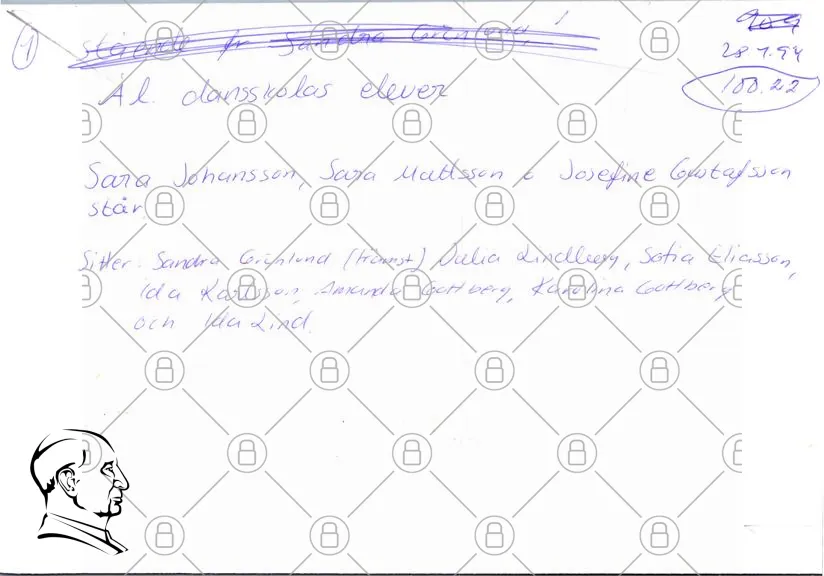 1
Stående fr Sandra Grönlund,
909
28.1.94
100.22
Ål. dansskolas elever
Sara Johansson, Sara Mattsson o Josefine Gustafsson
står.
Sitter: Sandra Grönlund (främst) Julia Lindberg, Sofia Eliasson,
Ida Karlsson, Amanda Gottberg, Karolina Gottberg
och Ida Lind.